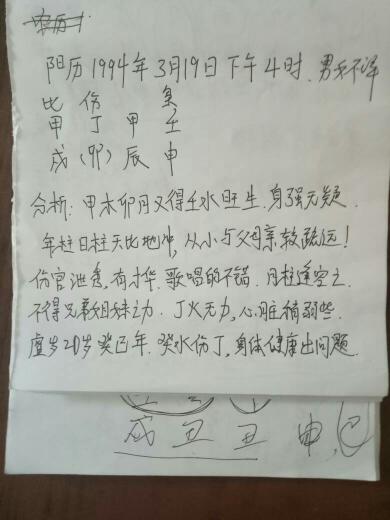 阳历1994年3月19日下午4时.男
比 伤 枭
甲 丁 甲 壬
戌(卯)辰 申
分析:甲木卯月又得壬水旺生.身强无疑.
年柱日柱天比地冲,从小与父母亲较疏远!
伤官泄秀,有才华.歌唱的不错.月柱逢空亡
不得兄弟姐妹之力.丁火无力,心脏稍弱些.
虚岁20岁癸巳年.癸水伤丁,身体健康出问题.
戌 丑 丑 申